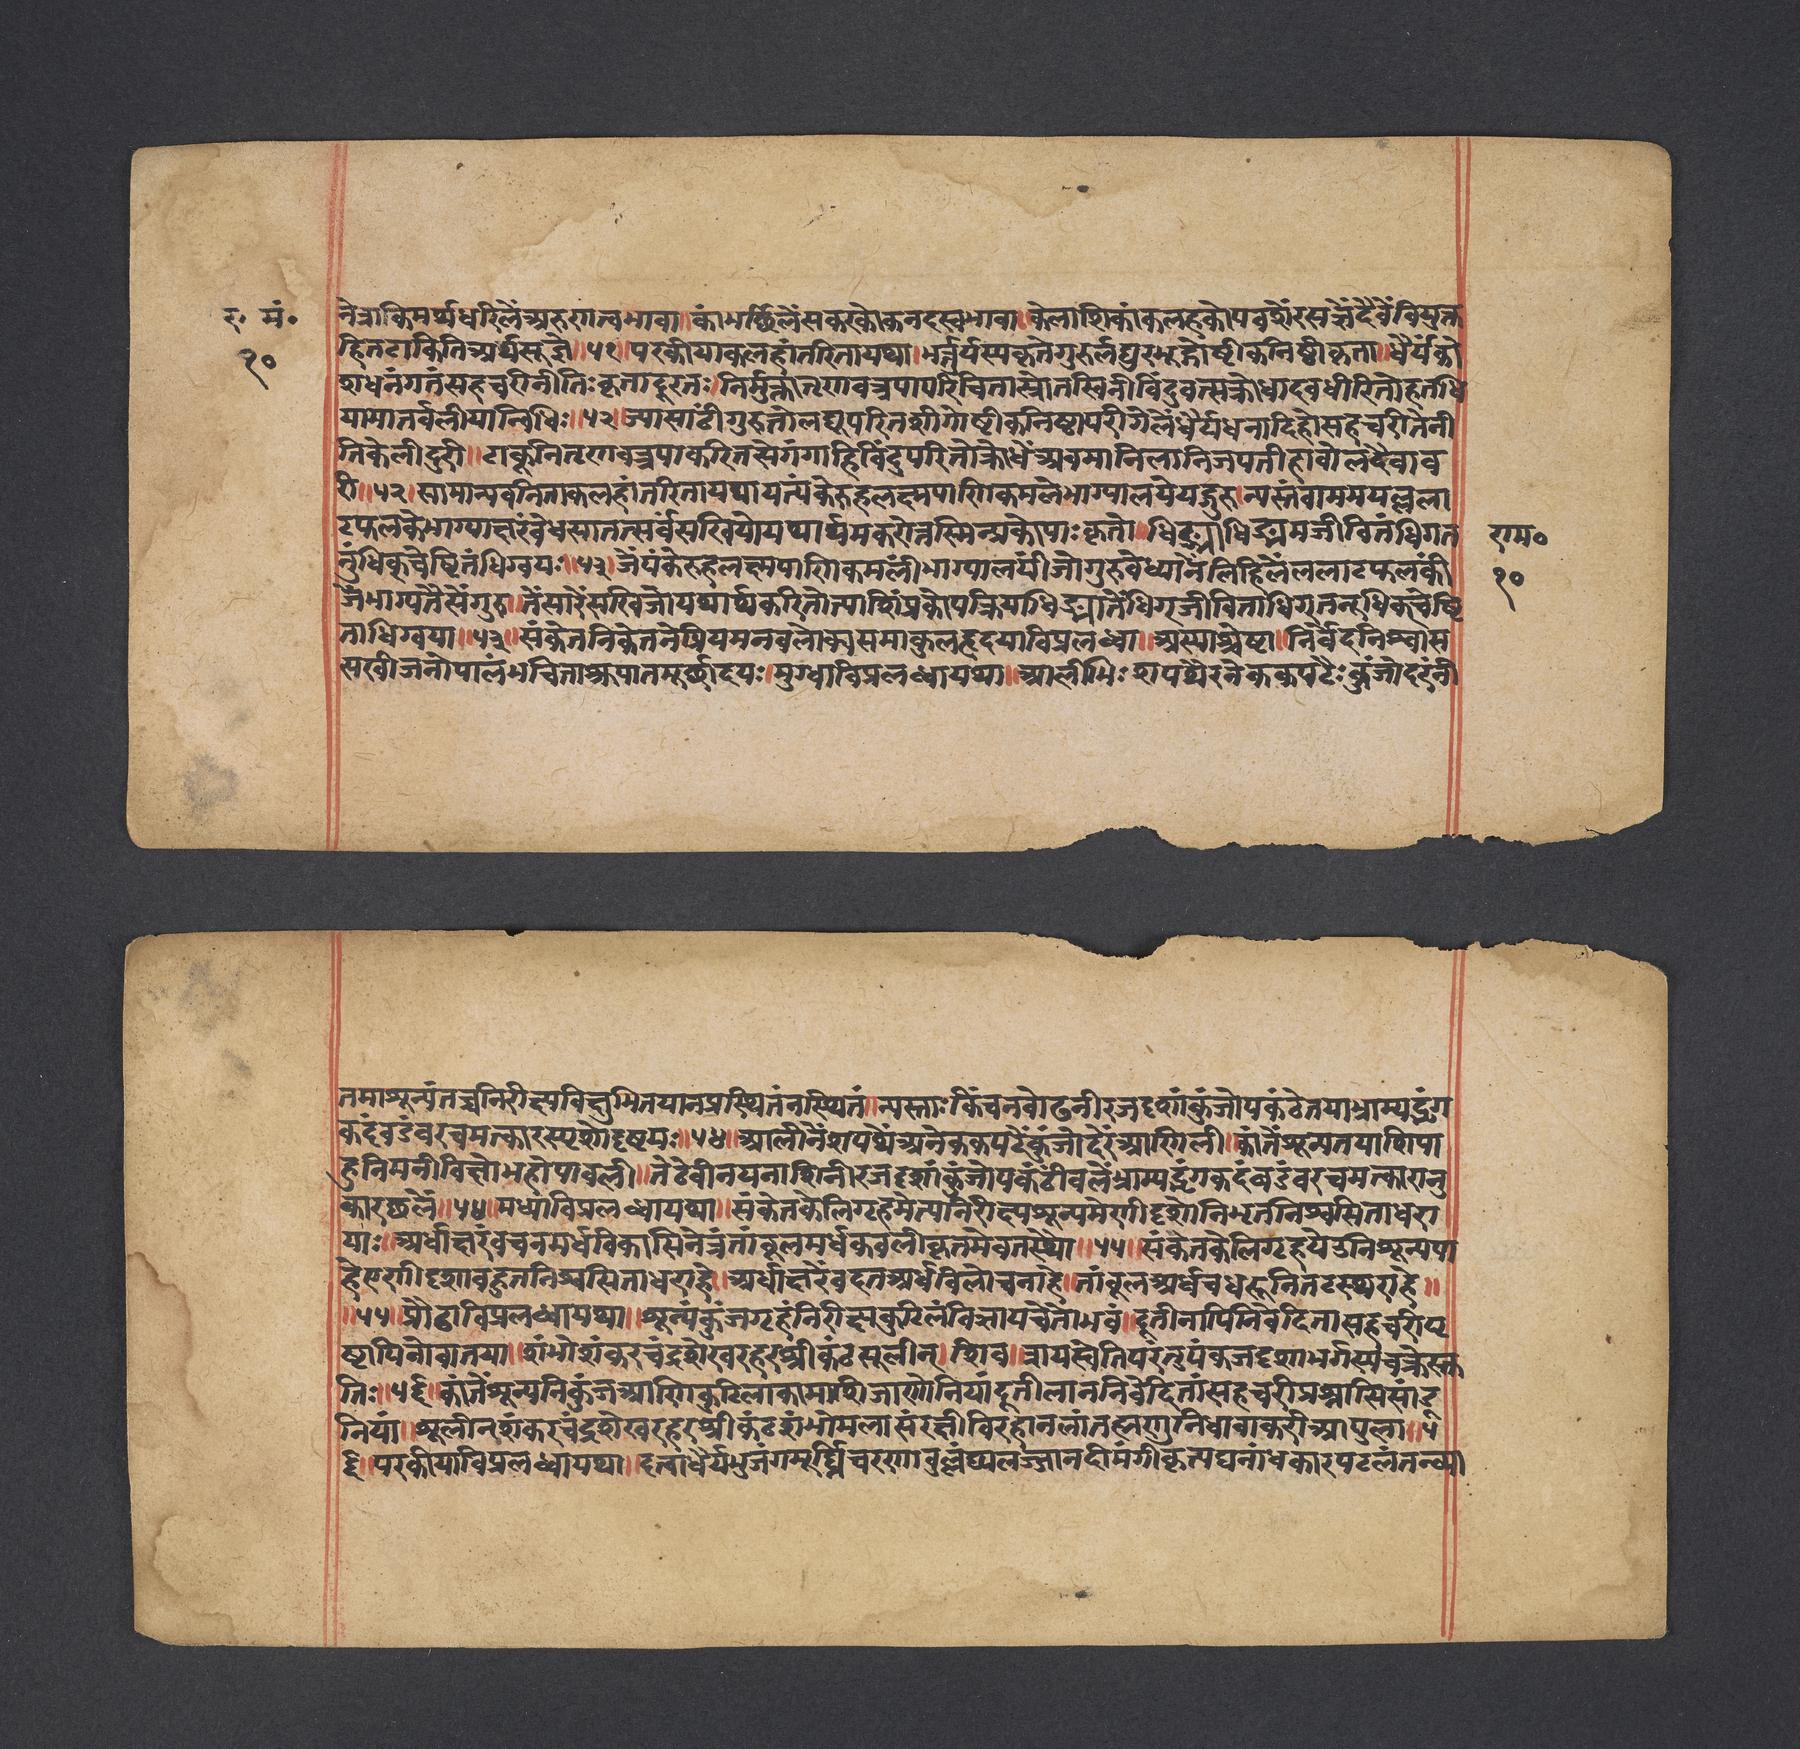 र. मं.
१०
नेत्राकिमर्थधरिलें अरुणात्वभावा॥ कां मछिलें सकरकोकनदस्वभावा॥ केलाशिकां कलहकोपवशें रसज्ञें दैवें वियुक्त
हितटाकिति आर्यसूज्ञे॥५१॥ परकीयाकलहांतरितायथा। भर्त्तुर्यस्यकृतेगुरुर्लघुरभूद्गोष्ठीकनिष्ठीकृता॥ धैर्यंको
शधनंगतंसहचरीनीतिःकृतादूरतः॥ निर्मुक्तातृणावत्रपापरिचितास्रोतस्विनीविंदुवत्सक्रोधादवधीरितोहतधि
यामातर्वलीयान्विधिः॥५२॥ ज्यासाटींगुरुतोलघूपरितशीगोष्टीकनिष्टापरीगेलेंधैर्यधनादिहोसहचरीतेनी
तिकेलीदुरी॥ टाकूनितृणावत्रपाकरितसेगंगाहिविंदुपरितोक्रोधेंअवमानिलानिजपतीहावोलदैवाव
री॥५२॥ सामान्यवनिताकलहांतरितायथायत्पंकेरुहलक्ष्मपाणिकमलेभाग्यालयेयद्गुरुन्यस्तंवाममयल्लला
टफलकेभाग्याक्षरंवेधसातत्सर्वंसखियोयथार्थमकरोत्तस्मिन्प्रकोपःकृतो॥ धिङ्माधिङ्ममजीवितंधिगत
नुंधिक्चेष्टितंधिग्वयः॥५३॥ जेंपंकेरुहलक्ष्मपाणिकमलींभाग्यालयींजोगुरुवेध्यानेंलिहिलेंललाटफलंकीं
जेंभाग्यतैसेंगुठा॥ तेंसारेंसखिजोयथार्थकरितोत्याशिंप्रकोपक्रियाधिङ्मातेंधिगजीविताधिगतनूधिक्चेष्टि
ताधिग्वया॥५३॥ संकेतनिकेतनेप्रियमनवलोक्यसमाकुलहृदयाविप्रलब्धा॥ अस्याश्चेष्टा॥ निर्वेदनिश्वास
सखीजनोपालंभचिंताश्रुपातमूर्छादयः॥ मुग्धाविप्रलब्धायथा॥ आलीभिःशपथैरनेककपटैःकुंजोदरंनी
राम०
१०
तमाशून्यंतच्चनिरीक्ष्यविक्षुभितयानप्रस्थितंनस्थितं॥ न्यस्ताःकिंचनवोढनीरजदृशांकुंजोपकंठेतयाभ्राम्यद्भृंग
कदंबडंबरचमत्कारस्पृशोदृष्टयः॥५४॥ आलीनेंशपथेंअनेककपटेंकुंजोदरेंआणिली॥ कांतेंशून्यतयाशिपा
हुनिमनीविक्षोभहोपावली॥ नेटेवीनयनाशिनीरजदृशांकुंजोपकंठींवलेंभ्राम्यद्भृंगकदंबडंबरचमत्कारानु
कारछलें॥५४॥ मध्याविप्रलब्धायथा॥ संकेतकेलिगृहमेत्यनिरीक्ष्यशून्यमेणीदृशोनिभृतनिश्वसिताधरा
याः॥ अर्धाक्षरंवचनमर्धविकासिनेत्रंतांबूलमर्धकवलीकृतमेवतस्थौ॥५५॥ संकेतकेलिगृहयेउनिशून्यपा
हेएणीदृशावहुतनिश्वसिताधराहे॥ अर्धाक्षरेंवदनअर्धविलोचनाहे॥ तांबूलअर्धचधरूनितटस्थराहे॥
॥५५॥ प्रौढाविप्रलब्धायथा॥ शून्यंकुंजगृहंनिरीक्ष्यकुटिलंविज्ञायचेतोभवं॥ दूतीनापिनिवेदितासहचरीपृ
ष्टापिनोवातया॥ शंभोशंकरचंद्रशेखरहरश्रीकंठसूलीन्॥ शिव॥ त्रायस्वेतिपरंतुपंकजदृशाभर्गस्यचक्रेस्तु
तिः॥५६॥ कांतेंशून्यनिकुंजआणिकुटिलाकामाशिजाणोनियांदूतीलाननिवेदितांसहचरीप्रश्नासिसाडू
नियां॥ शूलीन्शंकरचंद्रशेखरहरश्रीकंठशंभोमलासंरक्षीविरहानलांतम्हणुनिधावाकरीआपुला॥५
६॥ परकीयाविप्रलब्धायथा॥ दत्वाधैर्यभुजंगमूर्ध्निचरणावुल्लंघ्यलज्जानदीमंगीकृत्यघनांधकारपटलंतन्व्या